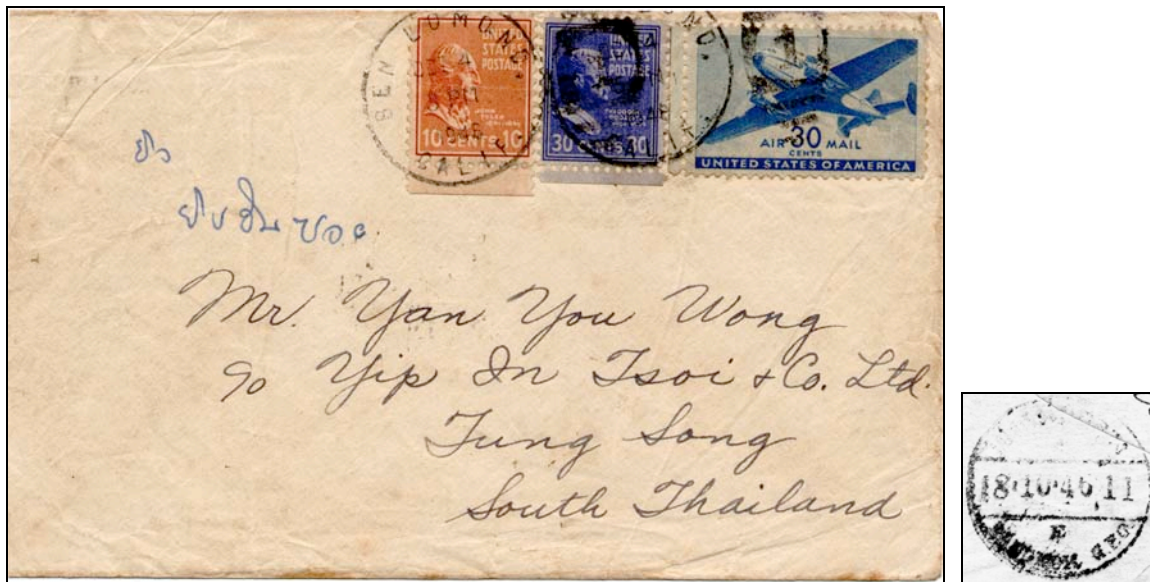 BEN LOMOND.
CALIF.
UNITED
STATES
POSTAGE
JOHN
TYLER
10 CENTS 10
UNITED
STATES
POSTAGE
30 CENTS 30
AIR 30 MAIL
CENTS
UNITED STATES OF AMERICA
ยิบอินซอย
Mr. Yan You Wong
c/o Yip In Tsoi + Co. Ltd.
Tung Song
South Thailand
18·10·46 11